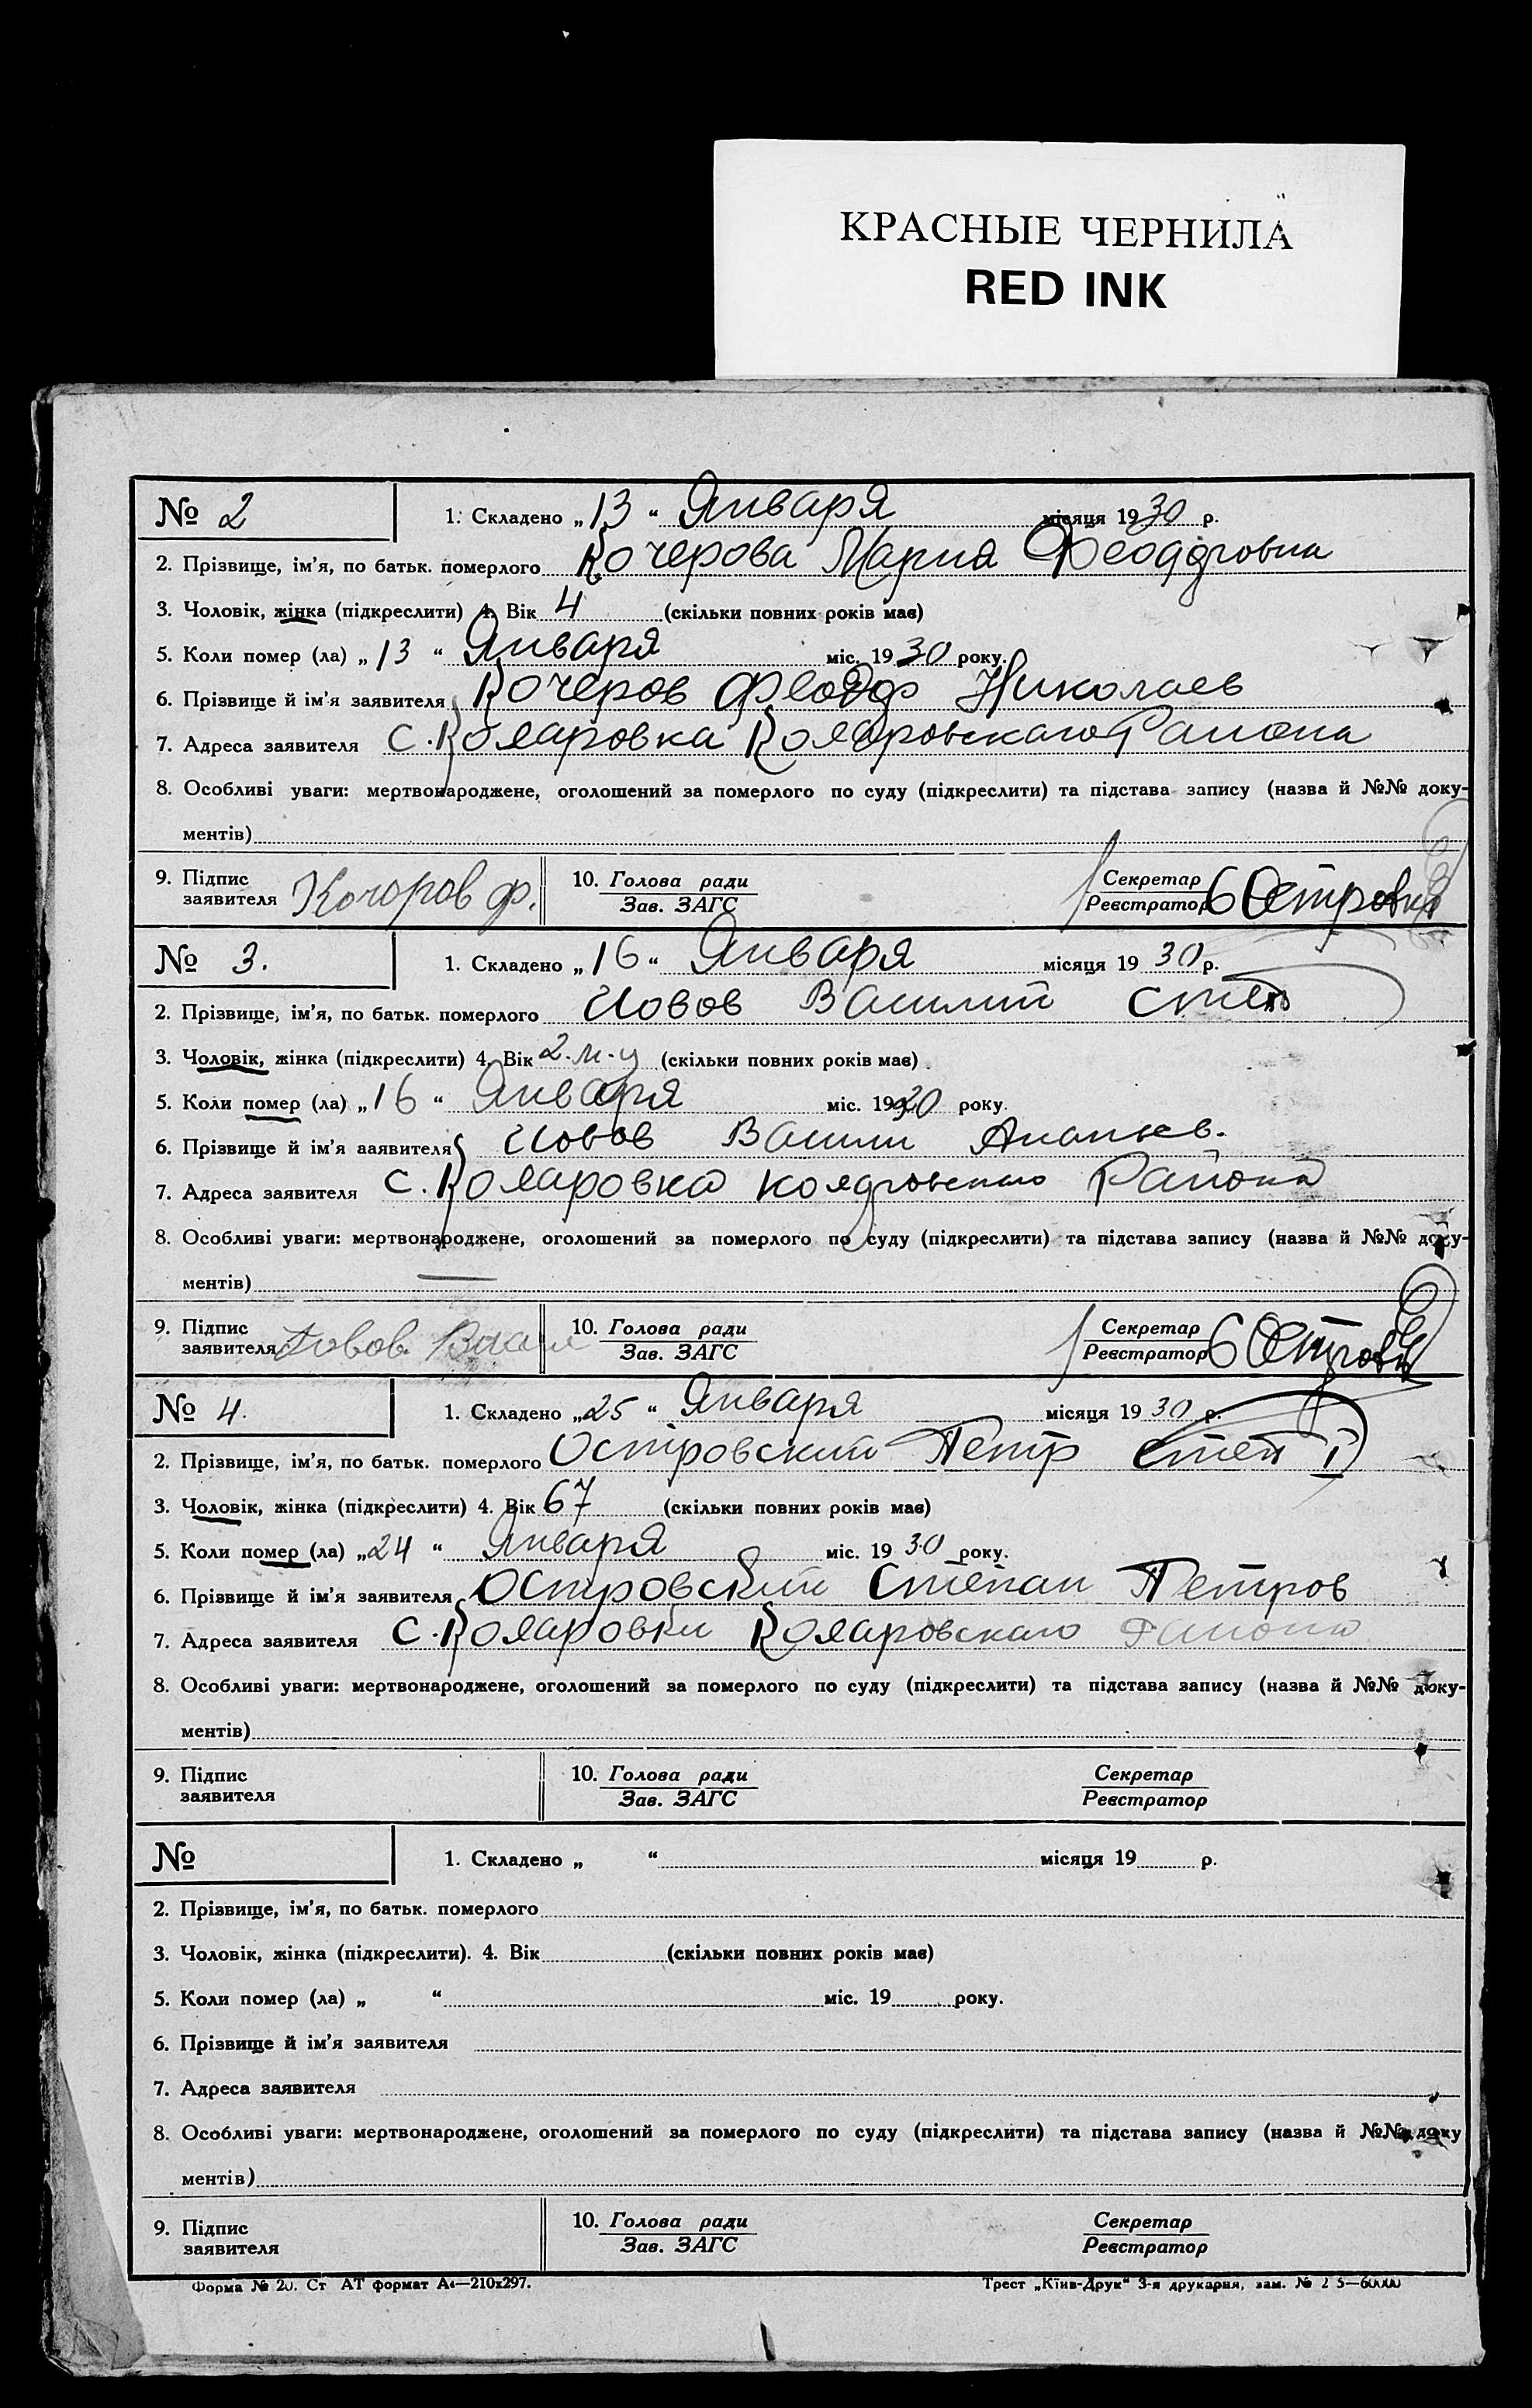 КРАСНЫЕ ЧЕРНИЛА
RED INK
№ 2 1. Складено „13“ Января місяця 1930 р.
2. Прізвище, ім'я, по батьк. померлого Кочерова Мария Феодоровна
3. Чоловік, жінка (підкреслити) 4. Вік 4 (скільки повних років має)
5. Коли помер (ла) „13“ Января міс. 1930 року.
6. Прізвище й ім'я заявителя Кочеров Феодор Николаев
7. Адреса заявителя с. Коларовка Коларовскаго Района
8. Особливі уваги: мертвонароджене, оголошений за померлого по суду (підкреслити) та підстава запису (назва й №№ доку-
ментів)
9. Підпис заявителя Кочоров Ф. 10. Голова ради Зав. ЗАГС Секретар Реєстратор
№ 3. 1. Складено „16“ Января місяця 1930 р.
2. Прізвище, ім'я, по батьк. померлого Иовов Василий Степ
3. Чоловік, жінка (підкреслити) 4. Вік 2.м-ц (скільки повних років має)
5. Коли помер (ла) „16“ Января міс. 1930 року.
6. Прізвище й ім'я заявителя Иовов Васили Ананьев.
7. Адреса заявителя с. Коларовка Коларовскаго Района
8. Особливі уваги: мертвонароджене, оголошений за померлого по суду (підкреслити) та підстава запису (назва й №№ доку-
ментів)
9. Підпис заявителя 10. Голова ради Зав. ЗАГС Секретар Реєстратор
№ 4. 1. Складено „25“ Января місяця 1930 р.
2. Прізвище, ім'я, по батьк. померлого Островский Петр Степ I
3. Чоловік, жінка (підкреслити) 4. Вік 67 (скільки повних років має)
5. Коли помер (ла) „24“ Января міс. 1930 року.
6. Прізвище й ім'я заявителя Островский Степан Петров
7. Адреса заявителя с. Коларовки Коларовскаго Района
8. Особливі уваги: мертвонароджене, оголошений за померлого по суду (підкреслити) та підстава запису (назва й №№ доку-
ментів)
9. Підпис заявителя 10. Голова ради Зав. ЗАГС Секретар Реєстратор
№ 1. Складено „ “ місяця 19 р.
2. Прізвище, ім'я, по батьк. померлого
3. Чоловік, жінка (підкреслити). 4. Вік (скільки повних років має)
5. Коли помер (ла) „ “ міс. 19 року.
6. Прізвище й ім'я заявителя
7. Адреса заявителя
8. Особливі уваги: мертвонароджене, оголошений за померлого по суду (підкреслити) та підстава запису (назва й №№ доку
ментів)
9. Підпис заявителя 10. Голова ради Зав. ЗАГС Секретар Реєстратор
Форма № 20. Ст АТ формат А4—210х297. Трест „Київ-Друк“ 3-я друкарня, зам. №